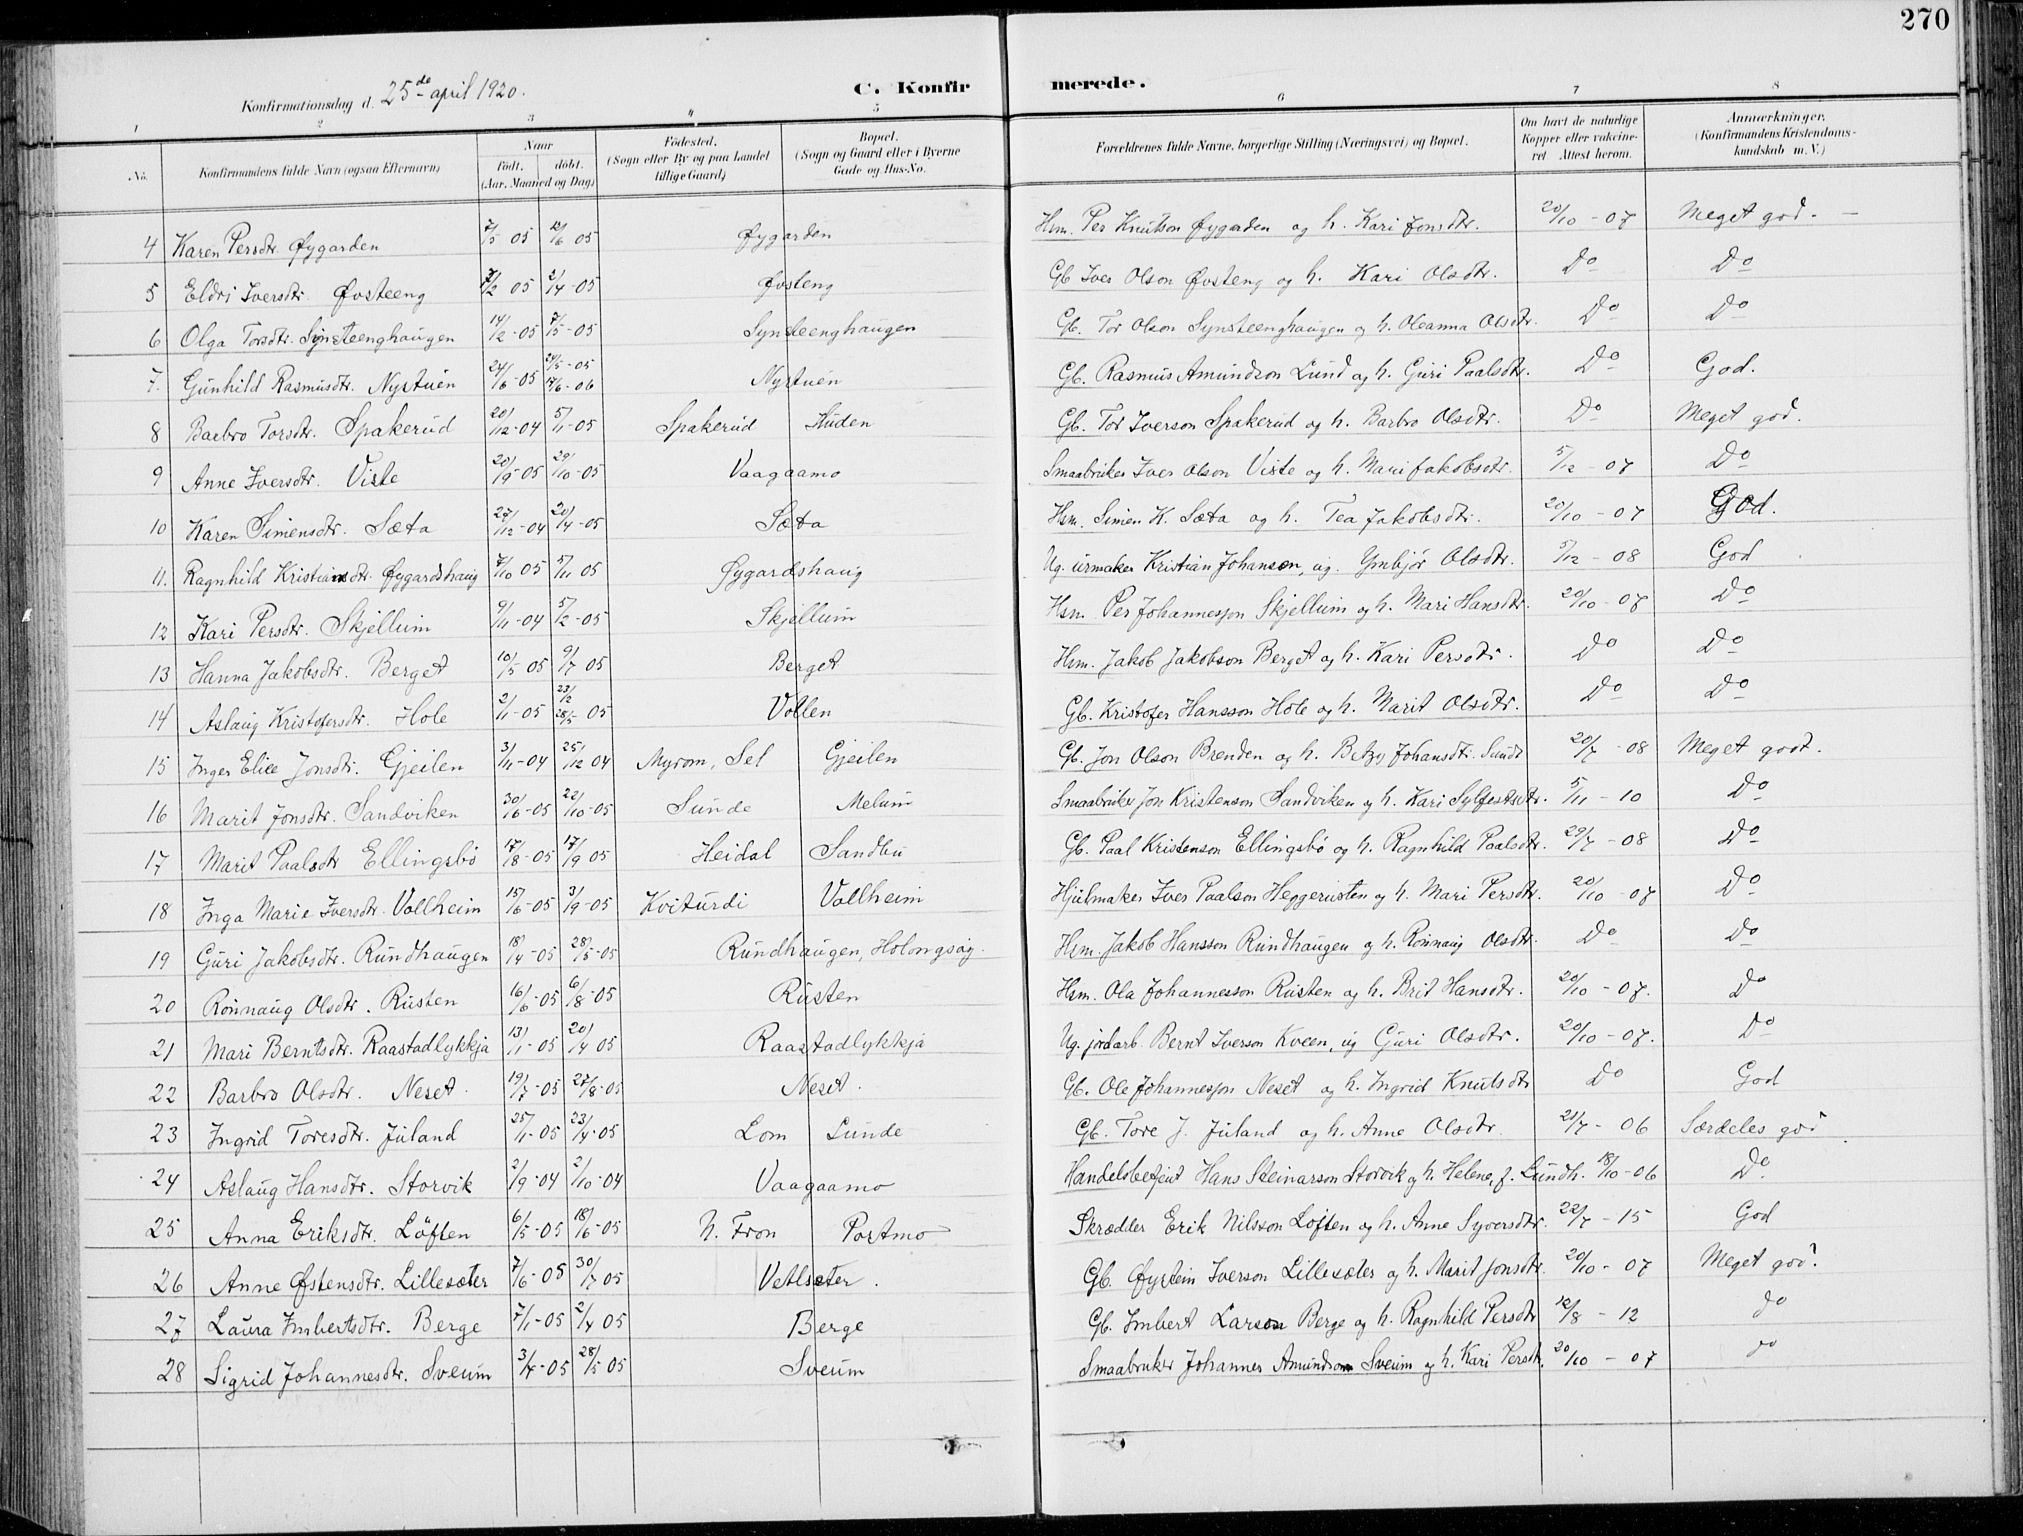 270
Konfirmationsdag d. 25de april 1920.
C. Konfirmerede.
1 2 3 4 5 6 7 8
No. Konfirmandens fulde Navn (ogsaa Efternavn) Naar født. døbt. (Aar, Maaned og Dag) Fødested. (Sogn eller By og paa Landet tillige Gaard) Bopæl. (Sogn og Gaard eller i Byerne Gade og Hus-No. Forældrenes fulde Navne, borgerlige Stilling (Næringsvei) og Bopæl. Om havt de naturlige Kopper eller vakcineret. Attest herom. Anmærkninger. (Konfirmandens Kristendomskundskab m. V.)
4 Karen Persdtr. Øygarden 7/5 05 12/6 05 Øygarden Hsm. Per Knutson Øygarden og h. Kari Jonsdtr. 20/10 - 07 Meget god. -
5 Eldri Iversdtr. Øvsteeng 7/2 05 2/4 - 05 Øvsteng Gb. Iver Olson Øvsteng og h. Kari Olsdtr. Do Do
6 Olga Torsdtr. Synsteenghaugen 14/2 - 05 7/5 - 05 Synsteenghaugen Gb. Tor Olson Synsteenghaugen og h. Oleanna Olsdtr. Do Do
7. Gunhild Rasmusdtr. Nystuen 24/6 - 05 24/5 - 05 17/6 - 06 Nystuen Gb. Rasmus Amundson Lund og h. Guri Paalsdtr. Do God.
8 Barbro Torsdtr. Spakerud 20/12 - 04 5/1 - 05 Spakerud Huden Gb. Tor Iverson Spakerud og h. Barbro Olsdtr. Do Meget god.
9 Anne Iversdtr. Viste 20/9 05 29/10 - 05 Vaagaamo Smaabruker Iver Olson Viste og h. Mari Jakobsdtr. 5/12 - 07 Do
10 Karen Simensdtr. Sæta 27/12 - 04 20/4 - 05 Sæta Hsm. Simen K. Sæta og h. Tea Jakobsdtr. 20/10 - 07 God.
11. Ragnhild Kristiansdtr. Øygardshaug 7/10 05 5/11 05 Øygardshaug Ug. urmaker Kristian Johanson, ug. Ymbjør Olsdtr. 5/12 - 08 God
12 Kari Persdtr. Skjellum 9/11 - 04 5/2 - 05 Skjellum Hsm. Per Johannesson Skjellum og h. Mari Hansdtr. 20/10 - 07 Do
13 Hanna Jakobsdtr. Berget 10/5 05 9/7 05 Berget Hsm. Jakob Jakobson Berget og h. Kari Persdtr. Do Do
14 Aslaug Kristofersdtr. Hole 2/1 - 05 23/2 28/5 05 Vollen Gb. Kristofer Hansson Hole og h. Marit Olsdtr. Do Do
15 Inger Elice Jonsdtr. Gjeilen 3/11 - 04 25/12 04 Myrom, Sel Gjeilen Gb. Jon Olson Brenden og h. Betzy Johansdtr. Sunde 20/7 - 08 Meget godt.
16 Marit Jonsdtr. Sandviken 30/6 - 05 22/10 - 05 Sunde Melum Smaabruker Jon Kristenson Sandviken og h. Kari Sylfestsdtr. 5/11 - 10 Do
17 Marit Paalsdtr Ellingsbö 17/8 - 05 17/9 05 Heidal Sandbu Gb. Paal Kristenson Ellingsbö og h. Ragnhild Paalsdtr. 29/7 - 08 Do
18 Inga Marie Iversdtr. Vollheim 15/6 - 05 3/9 - 05 Kviturdi Vollheim Hjulmaker Iver Paalson Heggerusten og h. Mari Persdtr. 20/10 - 07 Do
19 Guri Jakobsdtr. Rundhaugen 18/4 - 05 28/5 - 05 Rundhaugen, Holongsøy. Hsm. Jakob Hansson Rundhaugen og h. Rönnaug Olsdtr. Do Do
20 Rönnaug Olsdtr. Rusten 16/6 - 05 6/8 - 05 Rusten Hsm. Ola Johannesson Rusten og h. Brit Hansdtr. 20/10 - 07. Do
21 Mari Berntsdtr. Raastadlykkja 13/1 - 05 20/4 05 Raastadlykkja Ug. jordarb. Bernt Iverson Kveen, ug Guri Olsdtr. 20/10 - 07. Do
22 Barbro Olsdtr. Neset. 19/7 - 05 27/8 - 05 Neset. Gb. Ole Johannesson Neset og h. Ingrid Knutsdtr Do God
23 Ingrid Toresdtr. Juland 25/1 - 05 23/4 - 05 Lom Sunde Gb. Tore J. Juland og h. Anne Olsdtr. 21/7 - 06 Særdeles god
24 Aslaug Hansdtr. Storvik 2/9 - 04 2/10 - 04 Vaagaamo Handelsbetjent Hans Steinarson Storvik og h. Helene, f. Lundh. 18/10 - 06 Do.
25 Anna Eriksdtr. Löften 6/5 - 05 18/6 - 05 N. Fron Postmo Skrædder Erik Nilsson Löften og h. Anne Syversdtr. 22/7 - 15 God
26 Anne Østensdtr. Lillesæter 7/6 - 05 30/7 05 Vetlseter. Gb. Øystein Iverson Lillesæter og h. Marit Jonsdtr. 20/10 - 07 Meget god.
27 Laura Imbertsdtr. Berge 7/1 - 05 2/4 05 Berge Gb. Imbert Larson Berge og h. Ragnhild Persdtr 12/8 - 12 do
28 Sigrid Johannesdtr. Sveum 3/4 - 05 28/5 05 Sveum Smaabruker Johannes Amundson Sveum og h. Kari Persdtr. 20/10 - 07 do